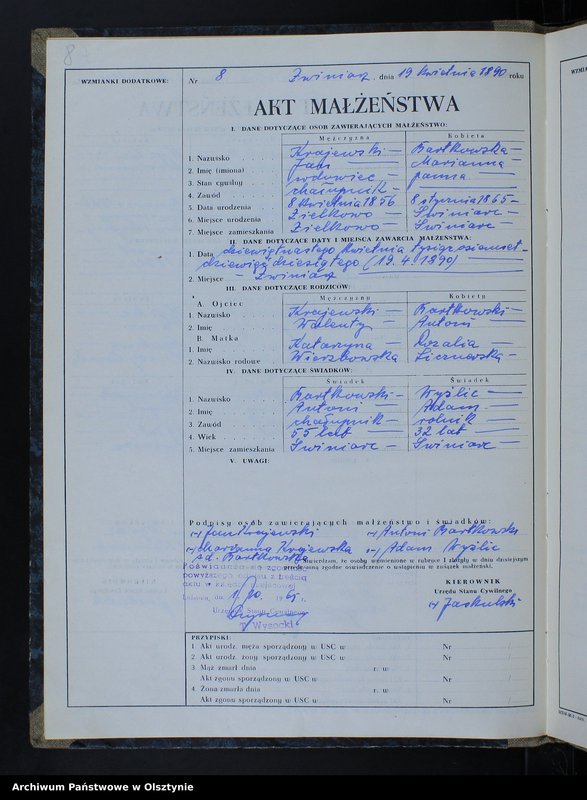 8
WZMIANKI DODATKOWE:
Nr 8 Zwiniarz, dnia 19 kwietnia 1890 roku
AKT MAŁŻEŃSTWA
I. DANE DOTYCZĄCE OSÓB ZAWIERAJĄCYCH MAŁŻEŃSTWO:
Mężczyzna Kobieta
1. Nazwisko Krajewski — Bartkowska —
2. Imię (imiona) Jan — Marianna —
3. Stan cywilny wdowiec — panna —
4. Zawód chałupnik —
5. Data urodzenia 8 kwietnia 1856 8 stycznia 1865 —
6. Miejsce urodzenia Zielkowo — Swiniarc —
7. Miejsce zamieszkania Zielkowo — Swiniarc —
II. DANE DOTYCZĄCE DATY I MIEJSCA ZAWARCIA MAŁŻEŃSTWA:
1. Data dziewiętnastego kwietnia tysiąc osiemset-
dziewięćdziesiątego (19.4.1890) —
2. Miejsce — Zwiniarz —
III. DANE DOTYCZĄCE RODZICÓW:
Mężczyzny Kobiety
A. Ojciec
1. Nazwisko Krajewski — Bartkowski —
2. Imię Walenty — Antoni —
B. Matka
1. Imię Katarzyna — Rozalia —
2. Nazwisko rodowe Wierzbowska Licznerska —
IV. DANE DOTYCZĄCE ŚWIADKÓW:
Świadek Świadek
1. Nazwisko Bartkowski — Wyślic —
2. Imię Antoni — Adam —
3. Zawód chałupnik — rolnik —
4. Wiek 55 lat — 32 lat —
5. Miejsce zamieszkania Swiniarc — Swiniarc —
V. UWAGI:
Podpisy osób zawierających małżeństwo i świadków:
(-) Jan Krajewski (-) Antoni Bartkowski
(-) Marianna Krajewska (-) Adam Wyślic
zd. Bartkowska
Stwierdzam, że osoby wymienione w rubryce I złożyły w dniu dzisiejszym
przede mną zgodne oświadczenie o wstąpieniu w związek małżeński.
Poświadczam zgodność
powyższego odpisu z treścią
aktu w księdze
Lubawa, dn. 10. 1965 r.
Urzędu Stanu Cywilnego
T. Wysocki
KIEROWNIK
Urzędu Stanu Cywilnego
(-) Jaskulski
PRZYPISKI:
1. Akt urodz. męża sporządzono w USC w Nr /
2. Akt urodz. żony sporządzono w USC w Nr /
3. Mąż zmarł dnia r. w
Akt zgonu sporządzono w USC w Nr /
4. Żona zmarła dnia r. w
Akt zgonu sporządzono w USC w Nr /
WZMIA
Archiwum Państwowe w Olsztynie